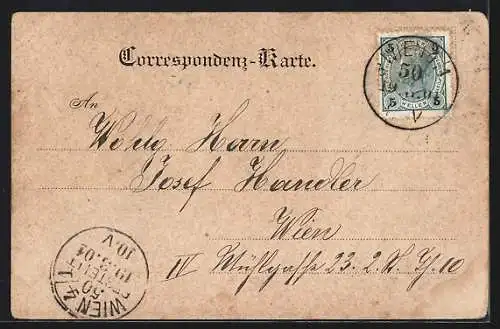 Correspondenz-Karte.
An
Wohlg Herrn
Josef Handler
Wien
IV Mühlgasse 23. 2. St. Y. 10
WIEN
50
5 HELLER 5
WIEN 4/1
50
BESTELLT
19.3.04
10.V